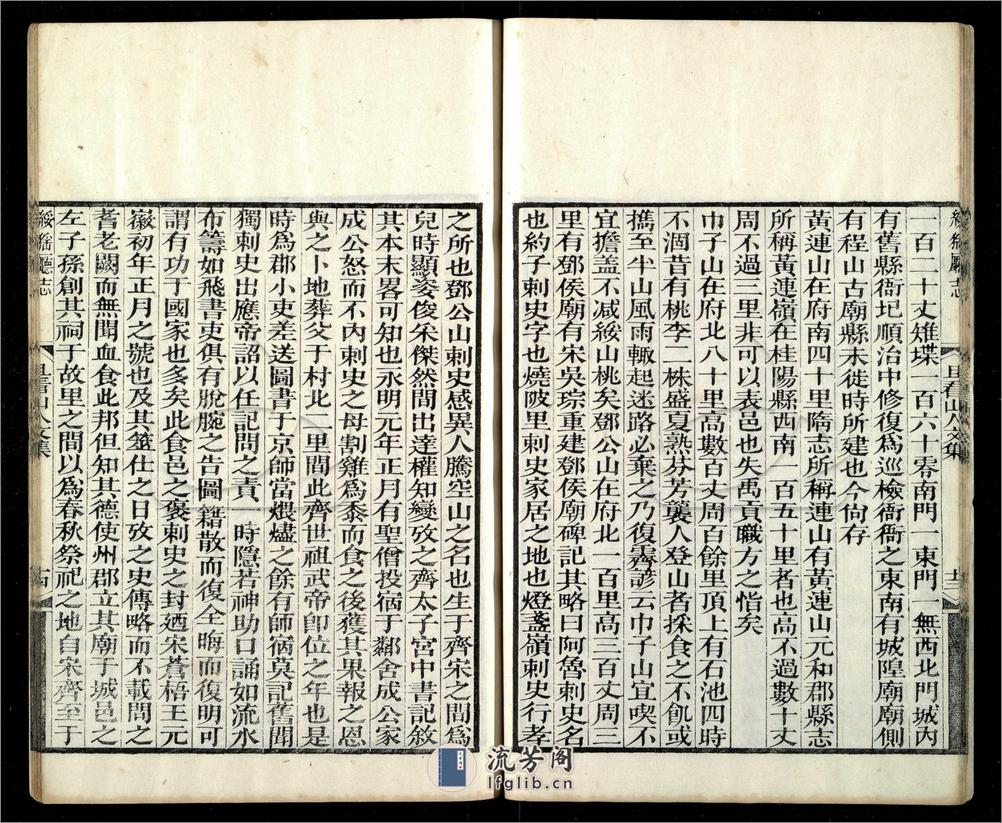 一百二十丈雉堞一百六十零南門一東門一無西北門城內
有舊縣衙圮順治中修復爲巡檢衙衙之東南有城隍廟廟側
有程山古廟縣未徙時所建也今尙存
黃連山在府南四十里隋志所稱連山有黃連山元和郡縣志
所稱黃連嶺在桂陽縣西南一百五十里者也高不過數十丈
周不過三里非可以表邑也失禹貢職方之恉矣
巾子山在府北八十里高數百丈周百餘里頂上有石池四時
不涸昔有桃李二株盛夏熟芬芳襲人登山者採食之不飢或
擕至半山風雨輙起迷路必棄之乃復霽諺云巾子山宜喫不
宜擔蓋不減綏山桃矣鄧公山在府北一百里高三百丈周三
里有鄧侯廟有宋吳琮重建鄧侯廟碑記其略曰阿魯刺史名
也約子刺史字也燒陂里刺史家居之地也燈盞嶺刺史行孝
之所也鄧公山刺史感異人騰空山之名也生于齊宋之間爲
兒時顯姿俊朵傑然間出達權知變攷之齊太子宮中書記敘
其本末畧可知也永明元年正月有聖僧投宿于鄰舍成公家
成公怒而不內刺史之母割雞爲黍而食之後獲其果報之恩
與之卜地葬父于村北一里間此齊世祖武帝卽位之年也是
時爲郡小吏差送圖書于京師當煨燼之餘有師宿莫記舊聞
獨刺史出應帝詔以任記問之責一時隱若神助口誦如流水
布籌如飛書吏俱有脫腕之告圖籍散而復全晦而復明可
謂有功于國家也多矣此食邑之褒刺史之封廼宋蒼梧王元
嶶初年正月之號也及其筮仕之日攷之史傳略而不載問之
耆老闕而無聞血食此邦但知其德使州郡立其廟于城邑之
左子孫創其祠于故里之間以爲春秋祭祀之地自宋齊至于
綏猺廳志